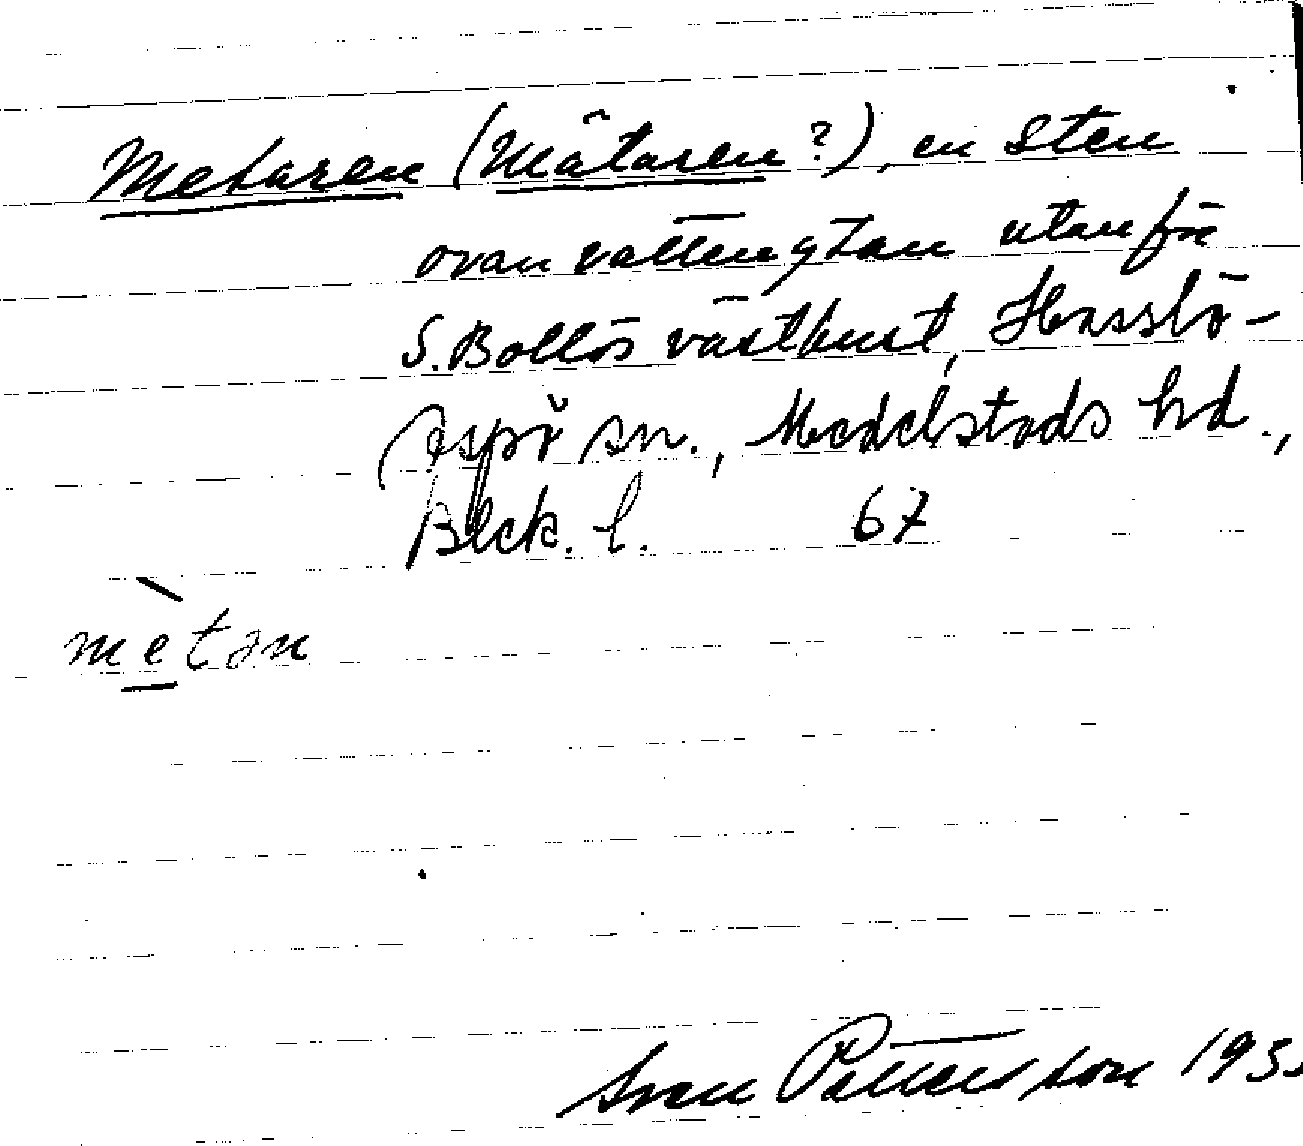 Metaren (Mätaren?), en sten
ovan vattenytan utanför
S. Bollös västkust, Hasslö-
Aspö sn., Medelstads hd.,
Blek. l. 67
mètan
Sven Patterson